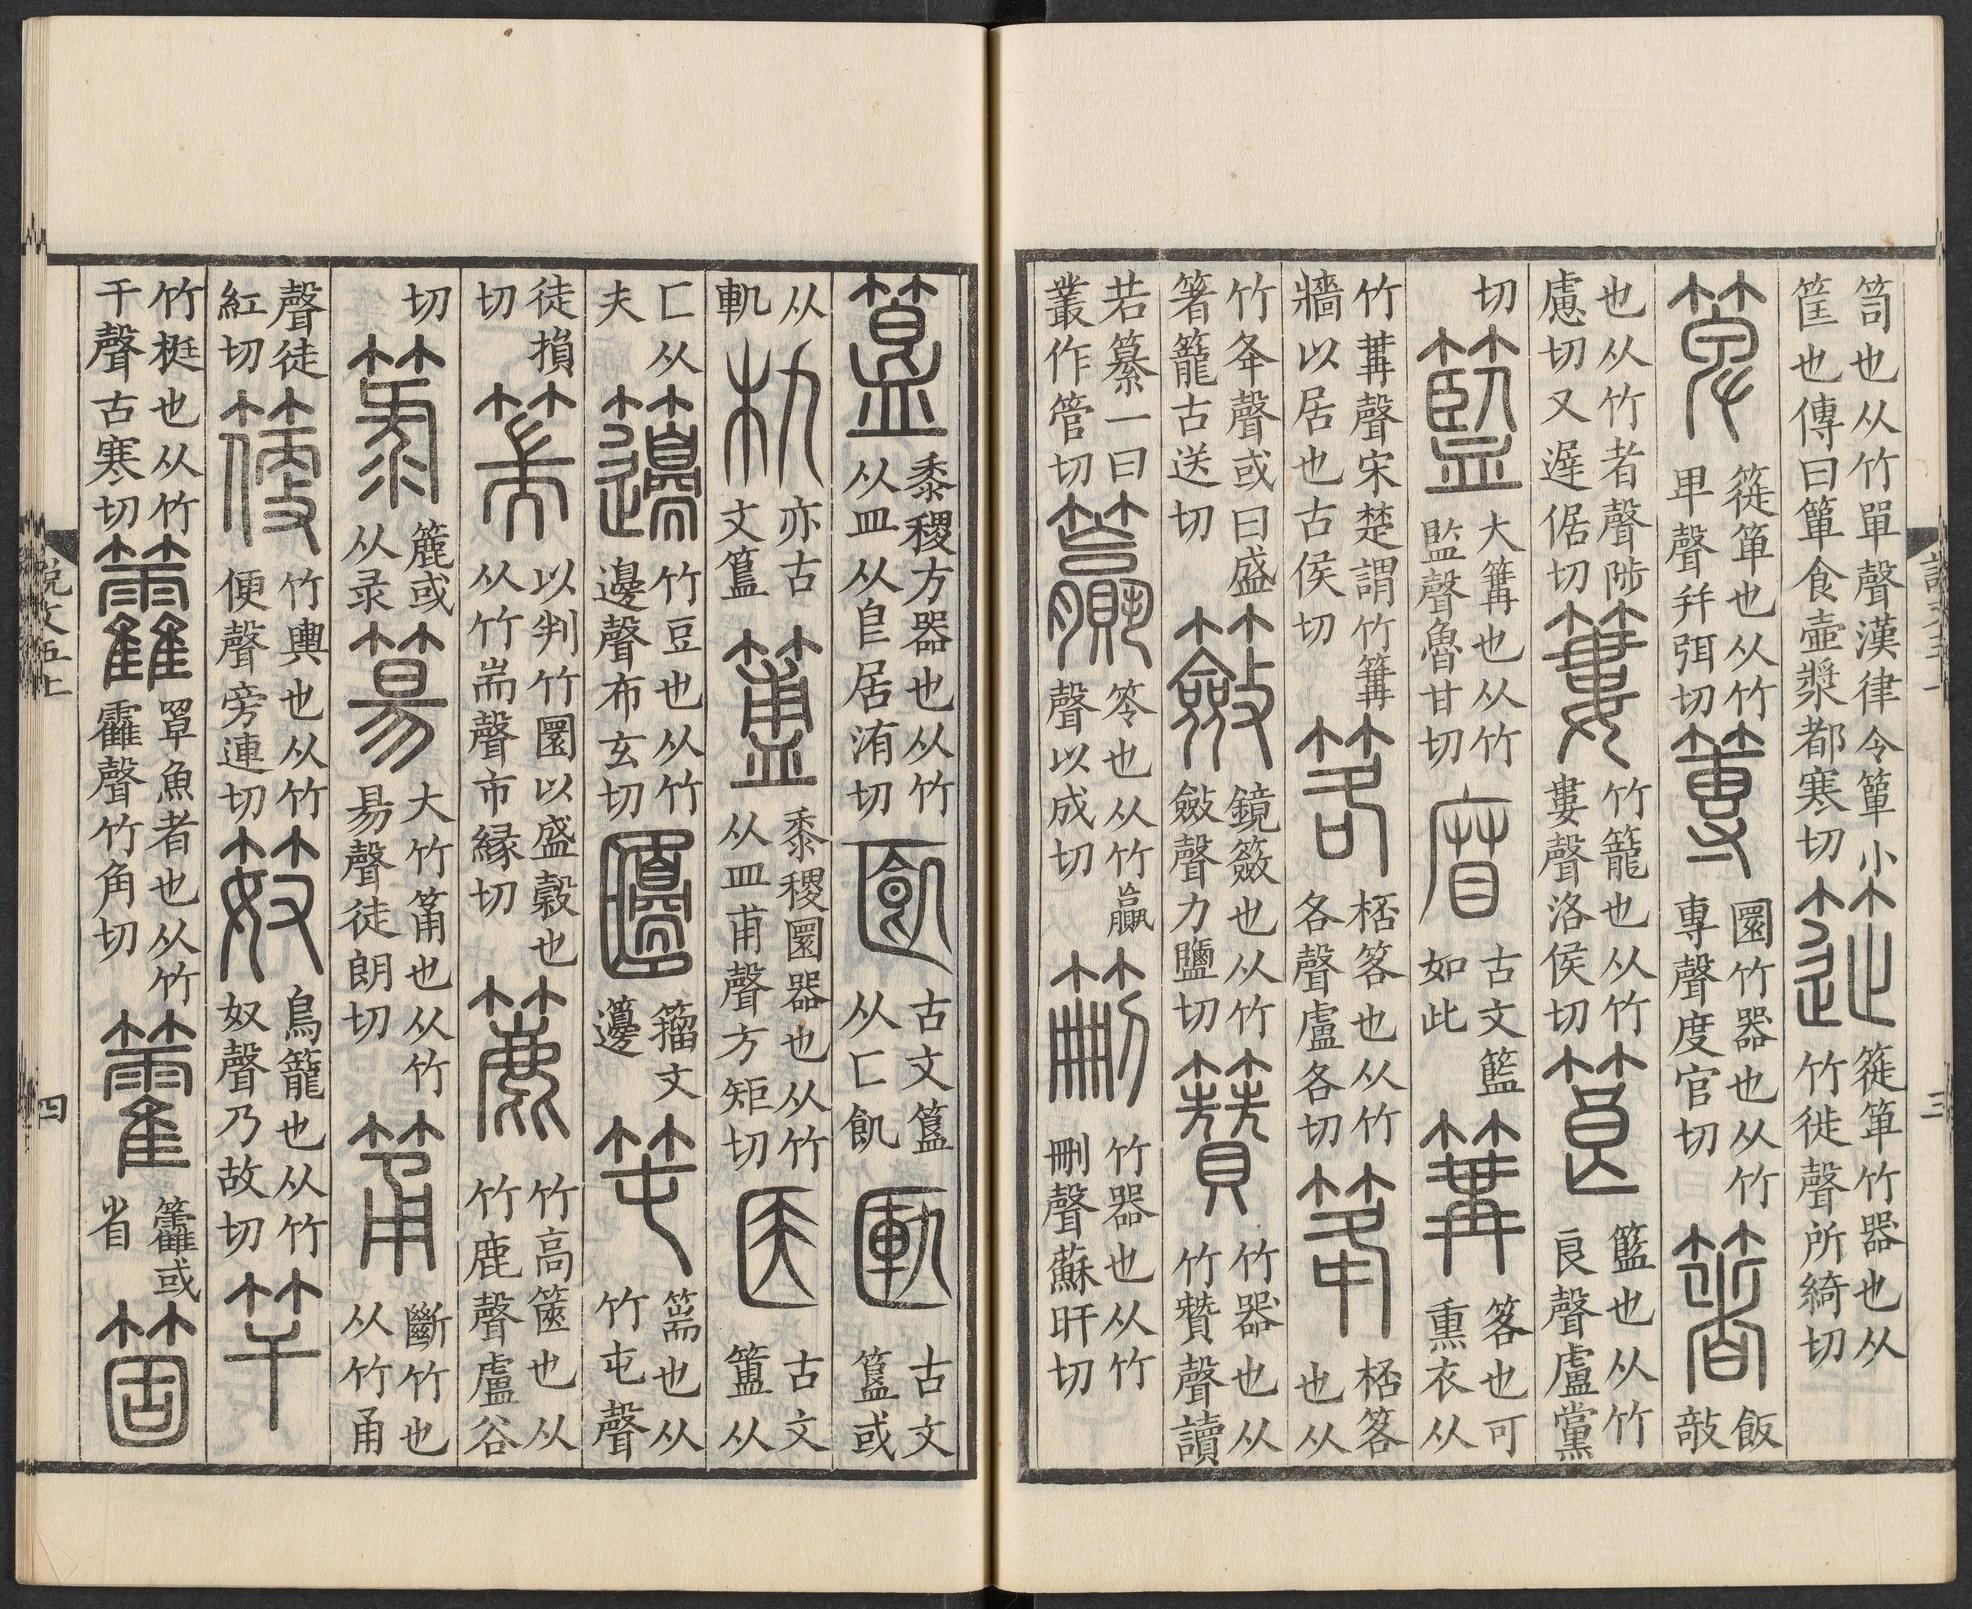 笥也从竹單聲漢律令簞小筐也傳曰簞食壺漿都寒切簁簁箄竹器也从竹徙聲所綺切
箄簁箄也从竹卑聲并弭切䉠圜竹器也从竹專聲度官切箸飯敧
也从竹者聲陟慮切又遟倨切簍竹籠也从竹婁聲洛侯切筤籃也从竹良聲盧黨
切籃大篝也从竹監聲魯甘切古文籃如此篝笿也可熏衣从
竹冓聲宋楚謂竹篝牆以居也古侯切笿桮笿也从竹各聲盧各切䇬桮笿也从
竹夅聲或曰盛箸籠古送切籢鏡籢也从竹斂聲力鹽切籫竹器也从竹贊聲讀
若纂一曰叢作管切籯笭也从竹𣎆聲以成切竹器也从竹刪聲蘇旰切
簋黍稷方器也从竹从皿从皀居洧切𠥗古文簋从匚飢匭古文簋或
从軌朹亦古文簋簠黍稷圜器也从竹从皿甫聲方矩切医古文簠从
匚从夫籩竹豆也从竹邊聲布玄切籀文籩笹篅也从竹屯聲
徒損切篅以判竹圜以盛穀也从竹耑聲市緣切簏竹高篋也从竹鹿聲盧谷
切箓簏或从录䈰大竹筩也从竹昜聲徒朗切筩斷竹也从竹甬
聲徒紅切箯竹輿也从竹便聲旁連切笯鳥籠也从竹奴聲乃故切竿
竹梃也从竹干聲古寒切籱罩魚者也从竹靃聲竹角切籗籱或省箇
説文五上 四